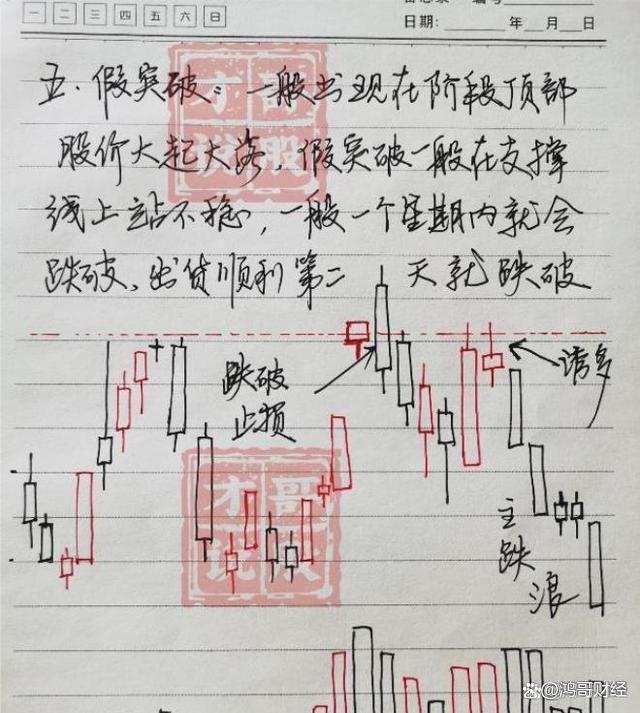 一 二 三 四 五 六 日
日期: 年 月 日
五、假突破：一般出现在阶段顶部
股价大起大落，假突破一般在支撑
线上站不稳，一般一个星期内就会
跌破、出货顺利第二 天就跌破
跌破
止损
诱多
主
跌
浪
才哥
说股
才哥
说股
鸿哥财经